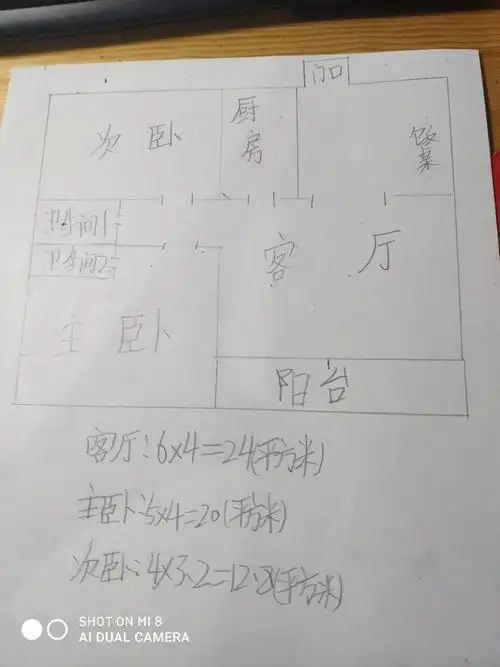 门口
次卧
厨房
饭桌
卫生间1
卫生间2
客厅
主卧
阳台
客厅:6×4=24(平方米)
主卧:5×4=20(平方米)
次卧:4×3.2=12.8(平方米)
SHOT ON MI 8
AI DUAL CAMERA